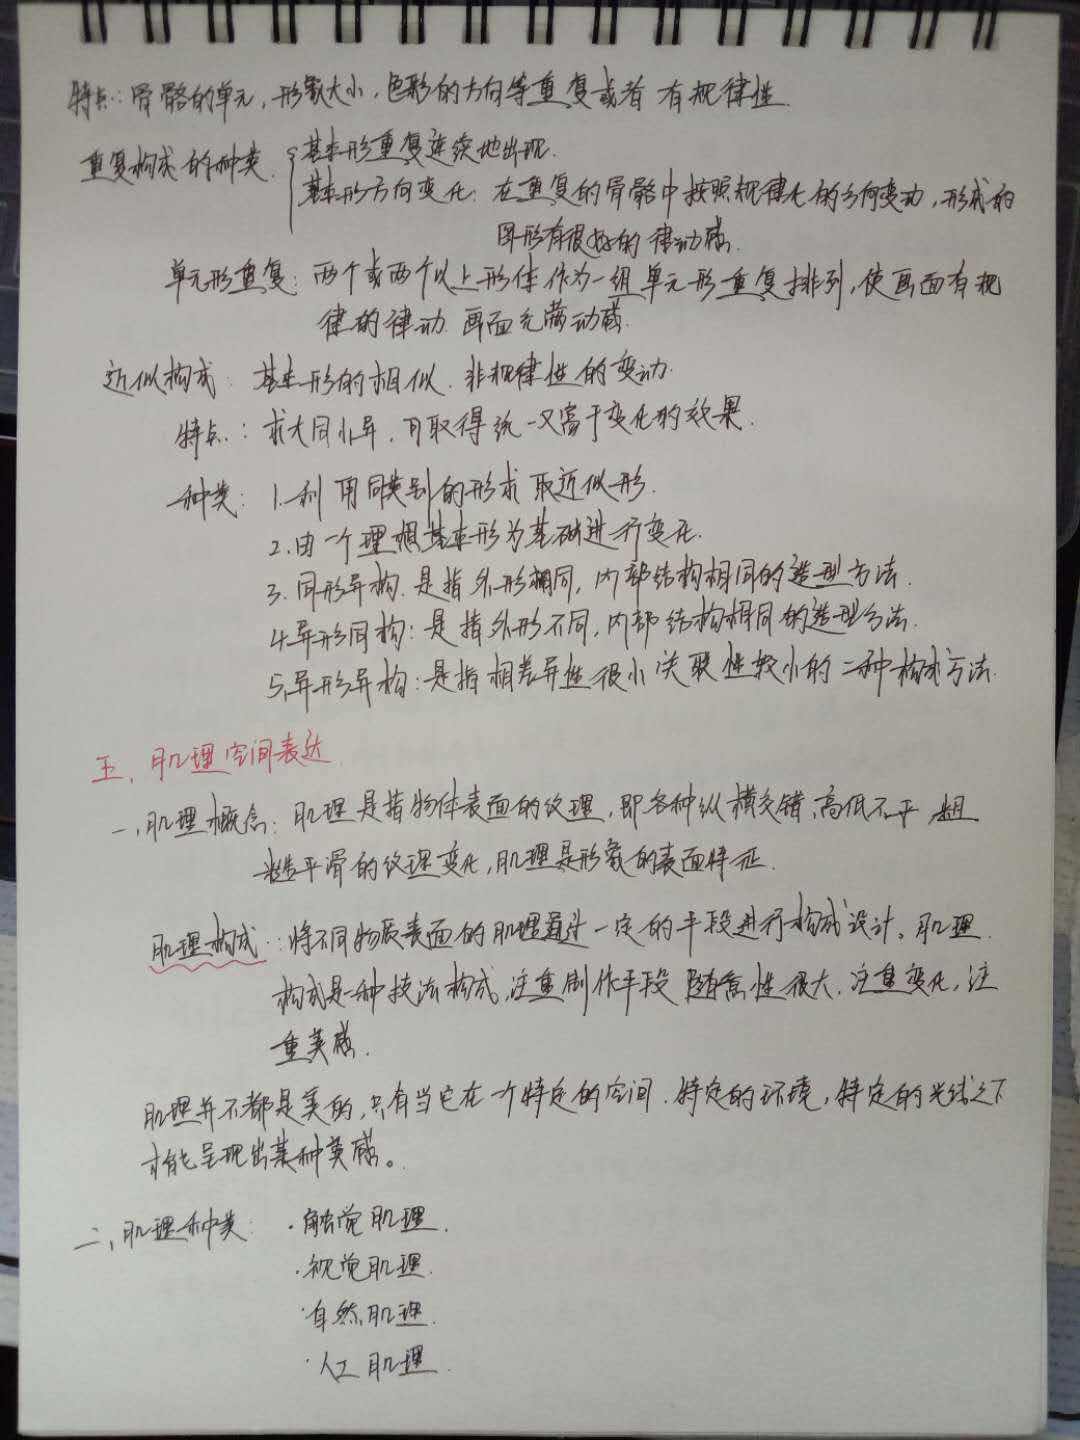 特点：骨骼的单元，形象大小，色彩的方向等重复或者有规律性.
重复构成的种类. 基本形重复连续地出现.
基本形方向变化：在重复的骨骼中按照规律化的方向变动，形成的
图形有很好的律动感.
单元形重复：两个或两个以上形体作为一组单元形重复排列，使画面有规
律的律动 画面充满动感.
近似构成：基本形的相似. 非规律性的变动.
特点：求大同小异，可取得统一又富于变化的效果.
种类：1.利用同类别的形求取近似形.
2.由一个理想基本形为基础进行变化.
3.同形异构. 是指外形相同，内部结构相同的造型方法.
4.异形同构：是指外形不同，内部结构相同的造型方法.
5.异形异构：是指相差异性很小关联性较小的一种构成方法.
五、肌理空间表达
一、肌理概念：肌理是指物体表面的纹理，即各种纵横交错、高低不平 粗
糙平滑的纹理变化，肌理是形象的表面特征.
肌理构成：将不同物质表面的肌理通过一定的手段进行构成设计。肌理
构成是一种技法构成，注重制作手段 随意性很大，注重变化，注
重美感.
肌理并不都是美的，只有当它在一个特定的空间. 特定的环境，特定的光线之下
才能呈现出某种美感。
二、肌理种类： ·触觉肌理.
·视觉肌理.
·自然肌理.
·人工肌理.